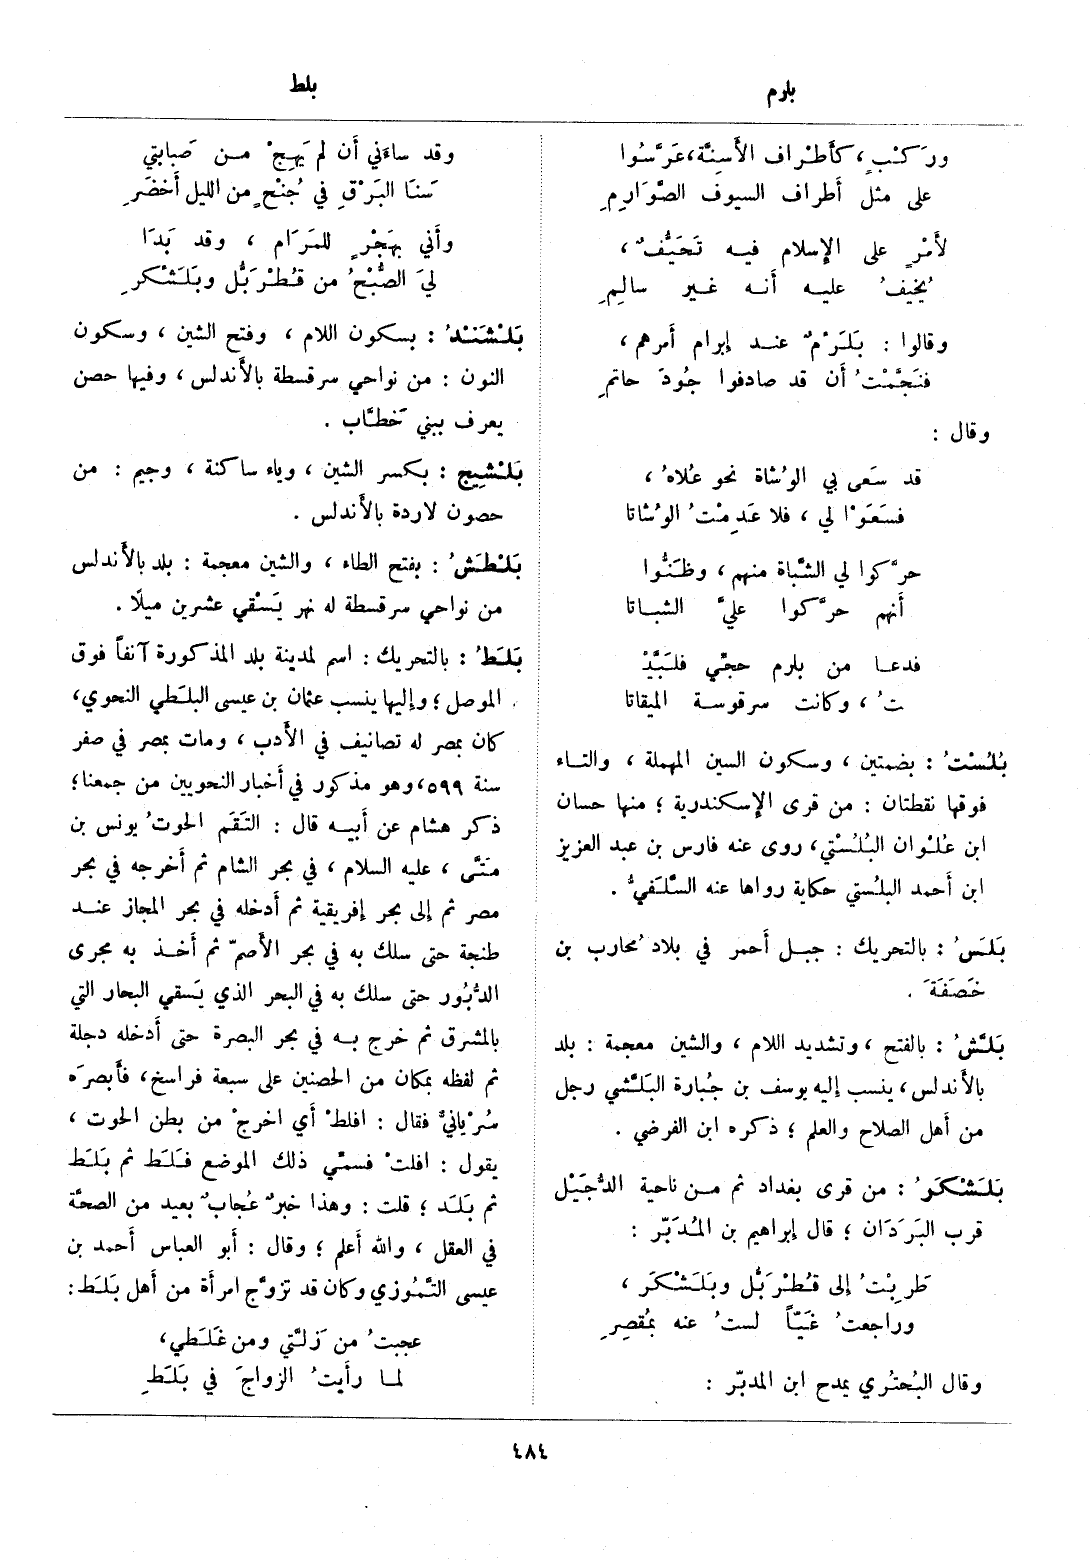 بلرم
بلط
ورَكْبٍ، كأطْراف الأسِنَّة، عَرَّسُوا
على مثل أطراف السيوف الصَّوَارِمِ
لأمْرٍ على الإسلام فيه تَحَيُّفٌ،
يُخيفُ عليه أنه غير سالِمِ
وقالوا : بَلَرْمٌ عند إبرام أمرهم،
فنَجَّمْتُ أن قد صادفوا جُودَ حاتمِ
وقال :
قد سَعى بي الوُشاة نحو عُلاهُ،
فسَعَوْا لي، فلا عَدِمْتُ الوُشاتا
حرَّكوا لي الشَّباة منهم، وظَنُّوا
أنهم حرَّكوا عليَّ الشباتا
فدعا من بلرم حجّي فلَبَّيْ
تُ، وكانت سرقوسة الميقاتا
بُلُسْتُ : بضمتين، وسكون السين المهملة، والتاء
فوقها نقطتان : من قرى الإسكندرية ؛ منها حسان
ابن عُلْوان البُلُستي، روى عنه فارس بن عبد العزيز
ابن أحمد البلُستي حكاية رواها عنه السِّلَفيُّ .
بَلَسُ : بالتحريك : جبل أحمر في بلاد مُحارب بن
خَصَفَةَ .
بَلَّشُ : بالفتح، وتشديد اللام، والشين معجمة : بلد
بالأندلس، ينسب إليه يوسف بن جُبارة البَلَّشي رجل
من أهل الصلاح والعلم ؛ ذكره ابن الفرضي .
بَلَشْكَرُ : من قرى بغداد ثم من ناحية الدُّجَيْل
قرب البَرَدَان ؛ قال إبراهيم بن المُدَبّر :
طَرِبْتُ إلى قُطْرَبُّل وبَلَشْكَرَ،
وراجعتُ غَيّاً لستُ عنه بمُقصِرِ
وقال البُحتُري يمدح ابن المدبّر :
وقد ساءَني أن لم يَهِجْ من صَبابتي
سَنَا البَرْقِ في جُنْحٍ من الليل أَخضَرِ
وأني بهَجْرٍ للمَرَام، وقد بَدَا
ليَ الصُّبْحُ من قُطْرَبُّل وبَلَشْكَرِ
بَلْشَنْدُ : بسكون اللام، وفتح الشين، وسكون
النون : من نواحي سرقسطة بالأندلس، وفيها حصن
يعرف ببني خَطَّاب .
بَلْشِيج : بكسر الشين، وياء ساكنة، وجيم : من
حصون لاردة بالأندلس .
بَلْطَشُ : بفتح الطاء، والشين معجمة : بلد بالأندلس
من نواحي سرقسطة له نهر يَسْقي عشرين ميلًا .
بَلَطُ : بالتحريك : اسم لمدينة بلد المذكورة آنفاً فوق
الموصل ؛ وإليها ينسب عثمان بن عيسى البلَطي النحوي،
كان بمصر له تصانيف في الأدب، ومات بمصر في صفر
سنة ٥٩٩، وهو مذكور في أخبار النحويين من جمعنا ؛
ذكر هشام عن أبيه قال : التَقَم الحوتُ يونس بن
مَتّى، عليه السلام، في بحر الشام ثم أخرجه في بحر
مصر ثم إلى بحر إفريقية ثم أدخله في بحر المجاز عند
طنجة حتى سلك به في بحر الأصمّ ثم أخذ به مجرى
الدَّبُور حتى سلك به في البحر الذي يَسقي البحار التي
بالمشرق ثم خرج به في بحر البصرة حتى أدخله دجلة
ثم لفظه بمكان من الحصنين على سبعة فراسخ، فأبصرَه
سُرْيانيٌّ فقال : افلطْ أي اخرجْ من بطن الحوت،
يقول : افلتْ فسمّي ذلك الموضع فَلَط ثم بَلَط
ثم بَلَد ؛ قلت : وهذا خبرٌ عُجابٌ بعيد من الصحَّة
في العقل، والله أعلم ؛ وقال : أبو العباس أحمد بن
عيسى التَّمُوزي وكان قد تزوَّج امرأة من أهل بَلَط :
عجبتُ من زَلَّتي ومن غَلَطي،
لما رأيتُ الزواجَ في بَلَطِ
٤٨٤